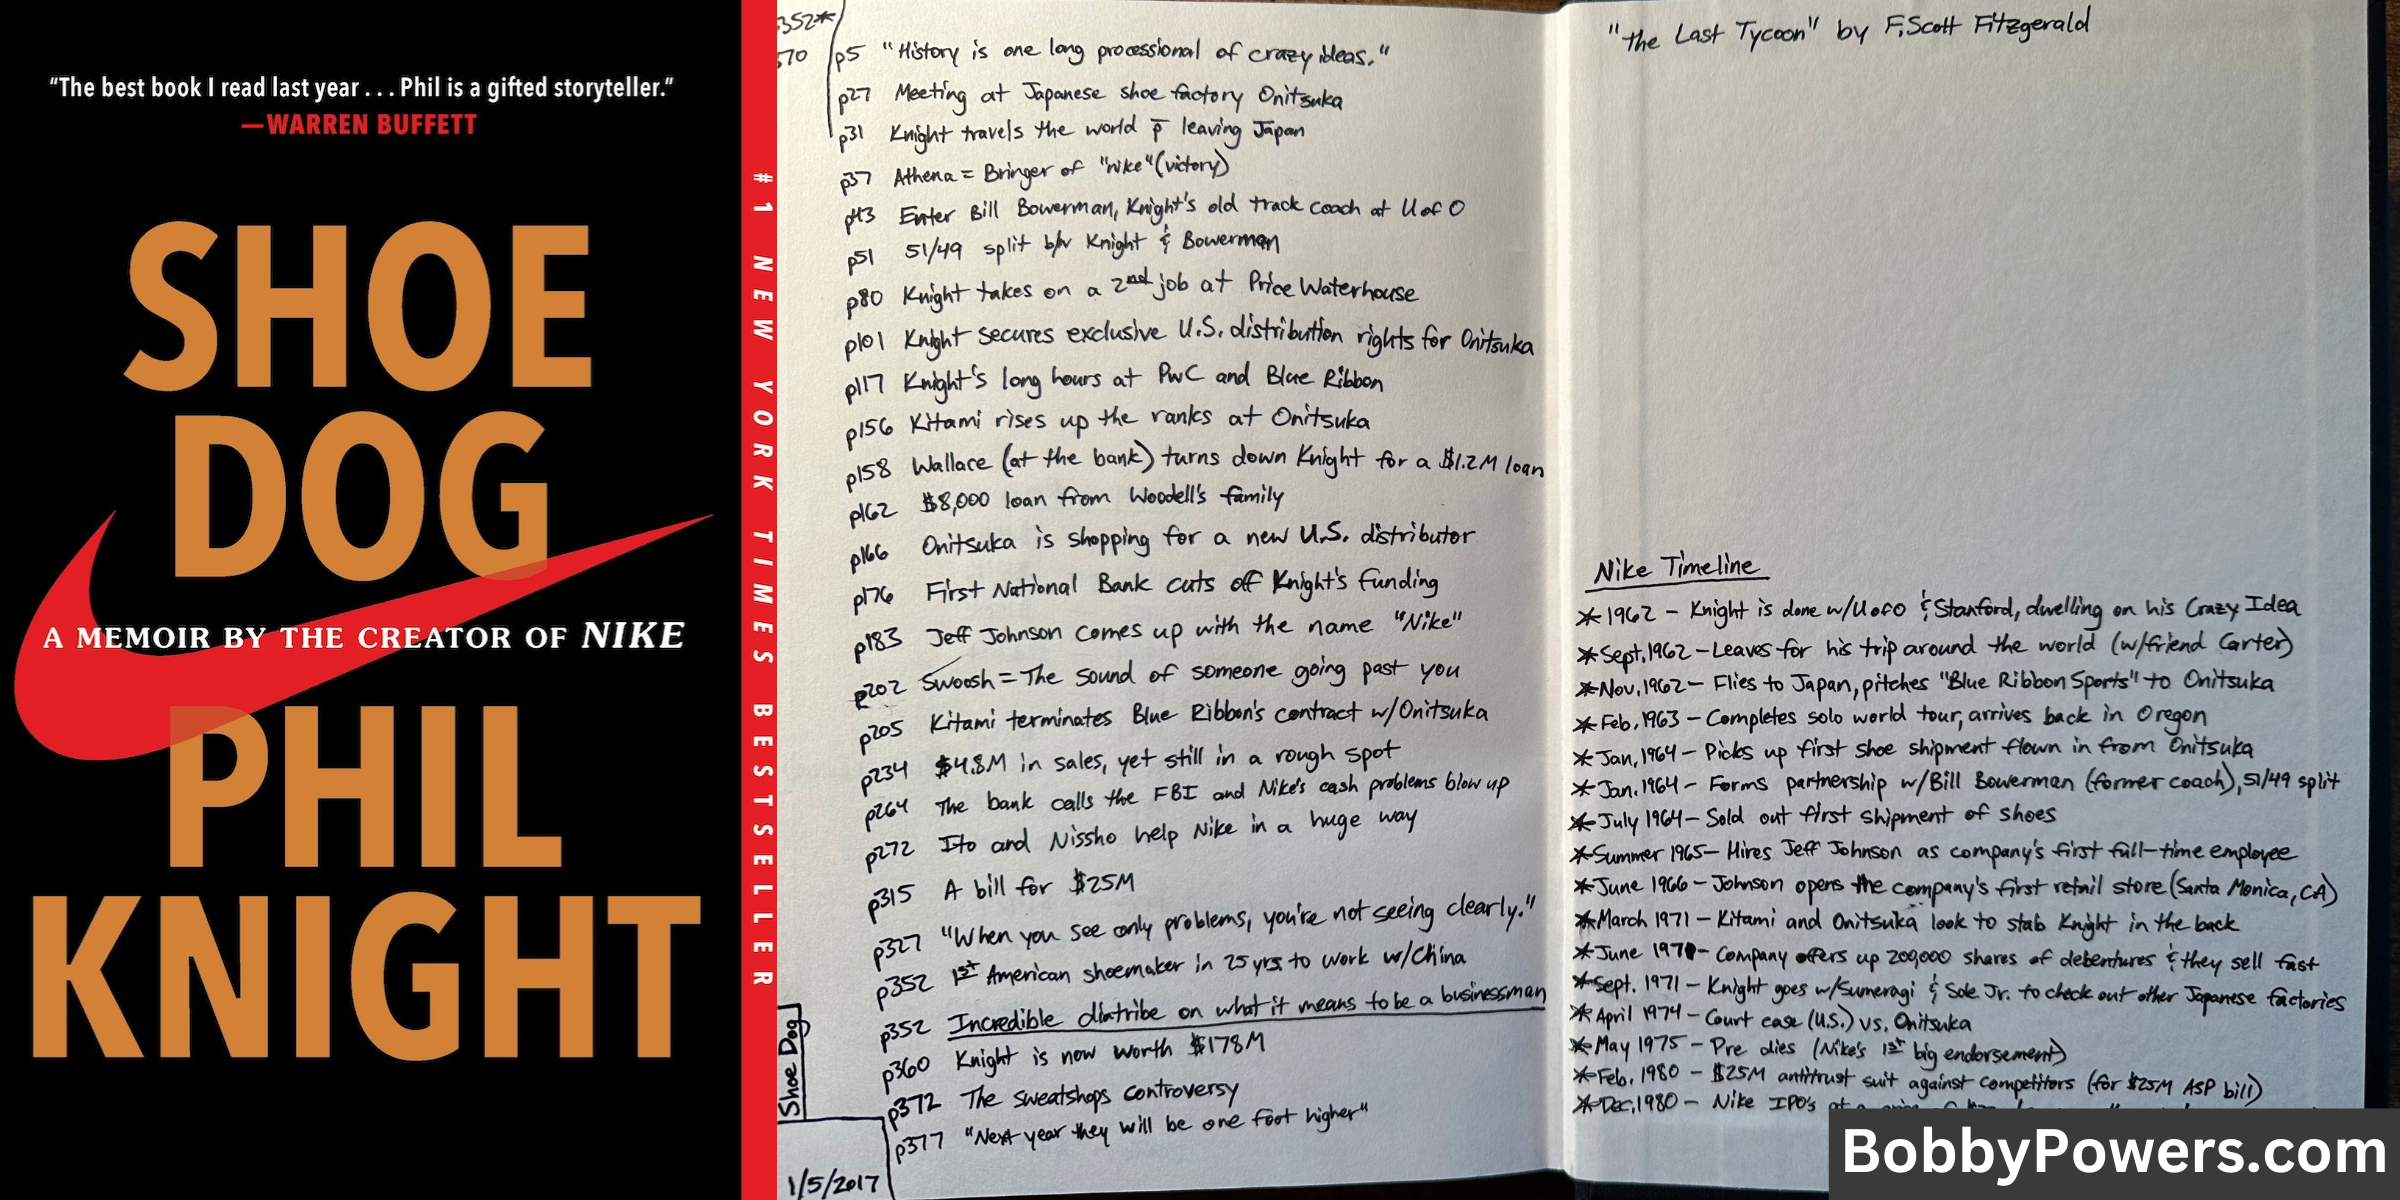 “The best book I read last year . . . Phil is a gifted storyteller.”
—WARREN BUFFETT
SHOE
DOG
A MEMOIR BY THE CREATOR OF NIKE
PHIL
KNIGHT
#1 NEW YORK TIMES BESTSELLER
352*
70
p5 "History is one long processional of crazy ideas."
p27 Meeting at Japanese shoe factory Onitsuka
p31 Knight travels the world p̄ leaving Japan
p37 Athena = Bringer of "nike" (victory)
p43 Enter Bill Bowerman, Knight's old track coach at U of O
p51 51/49 split b/w Knight & Bowerman
p80 Knight takes on a 2nd job at Price Waterhouse
p101 Knight secures exclusive U.S. distribution rights for Onitsuka
p117 Knight's long hours at PwC and Blue Ribbon
p156 Kitami rises up the ranks at Onitsuka
p158 Wallace (at the bank) turns down Knight for a $1.2M loan
p162 $8,000 loan from Woodell's family
p166 Onitsuka is shopping for a new U.S. distributor
p176 First National Bank cuts off Knight's funding
p183 Jeff Johnson comes up with the name "Nike"
p202 Swoosh = The sound of someone going past you
p205 Kitami terminates Blue Ribbon's contract w/Onitsuka
p234 $4.8M in sales, yet still in a rough spot
p264 The bank calls the FBI and Nike's cash problems blow up
p272 Ito and Nissho help Nike in a huge way
p315 A bill for $25M
p327 "When you see only problems, you're not seeing clearly."
p352 1st American shoemaker in 25 yrs to work w/China
p352 Incredible diatribe on what it means to be a businessman
p360 Knight is now worth $178M
p372 The sweatshops controversy
p377 "Next year they will be one foot higher"
Shoe Dog
1/5/2017
"The Last Tycoon" by F. Scott Fitzgerald
Nike Timeline
* 1962 - Knight is done w/U of O & Stanford, dwelling on his Crazy Idea
* Sept. 1962 - Leaves for his trip around the world (w/friend Carter)
* Nov. 1962 - Flies to Japan, pitches "Blue Ribbon Sports" to Onitsuka
* Feb. 1963 - Completes solo world tour, arrives back in Oregon
* Jan. 1964 - Picks up first shoe shipment flown in from Onitsuka
* Jan. 1964 - Forms partnership w/Bill Bowerman (former coach), 51/49 split
* July 1964 - Sold out first shipment of shoes
* Summer 1965 - Hires Jeff Johnson as company's first full-time employee
* June 1966 - Johnson opens the company's first retail store (Santa Monica, CA)
* March 1971 - Kitami and Onitsuka look to stab Knight in the back
* June 1971 - Company offers up 200,000 shares of debentures & they sell fast
* Sept. 1971 - Knight goes w/Sumeragi & Sole Jr. to check out other Japanese factories
* April 1974 - Court case (U.S.) vs. Onitsuka
* May 1975 - Pre dies (Nike's 1st big endorsement)
* Feb. 1980 - $25M antitrust suit against competitors (for $25M ASP bill)
* Dec. 1980 - Nike IPO's at a
BobbyPowers.com